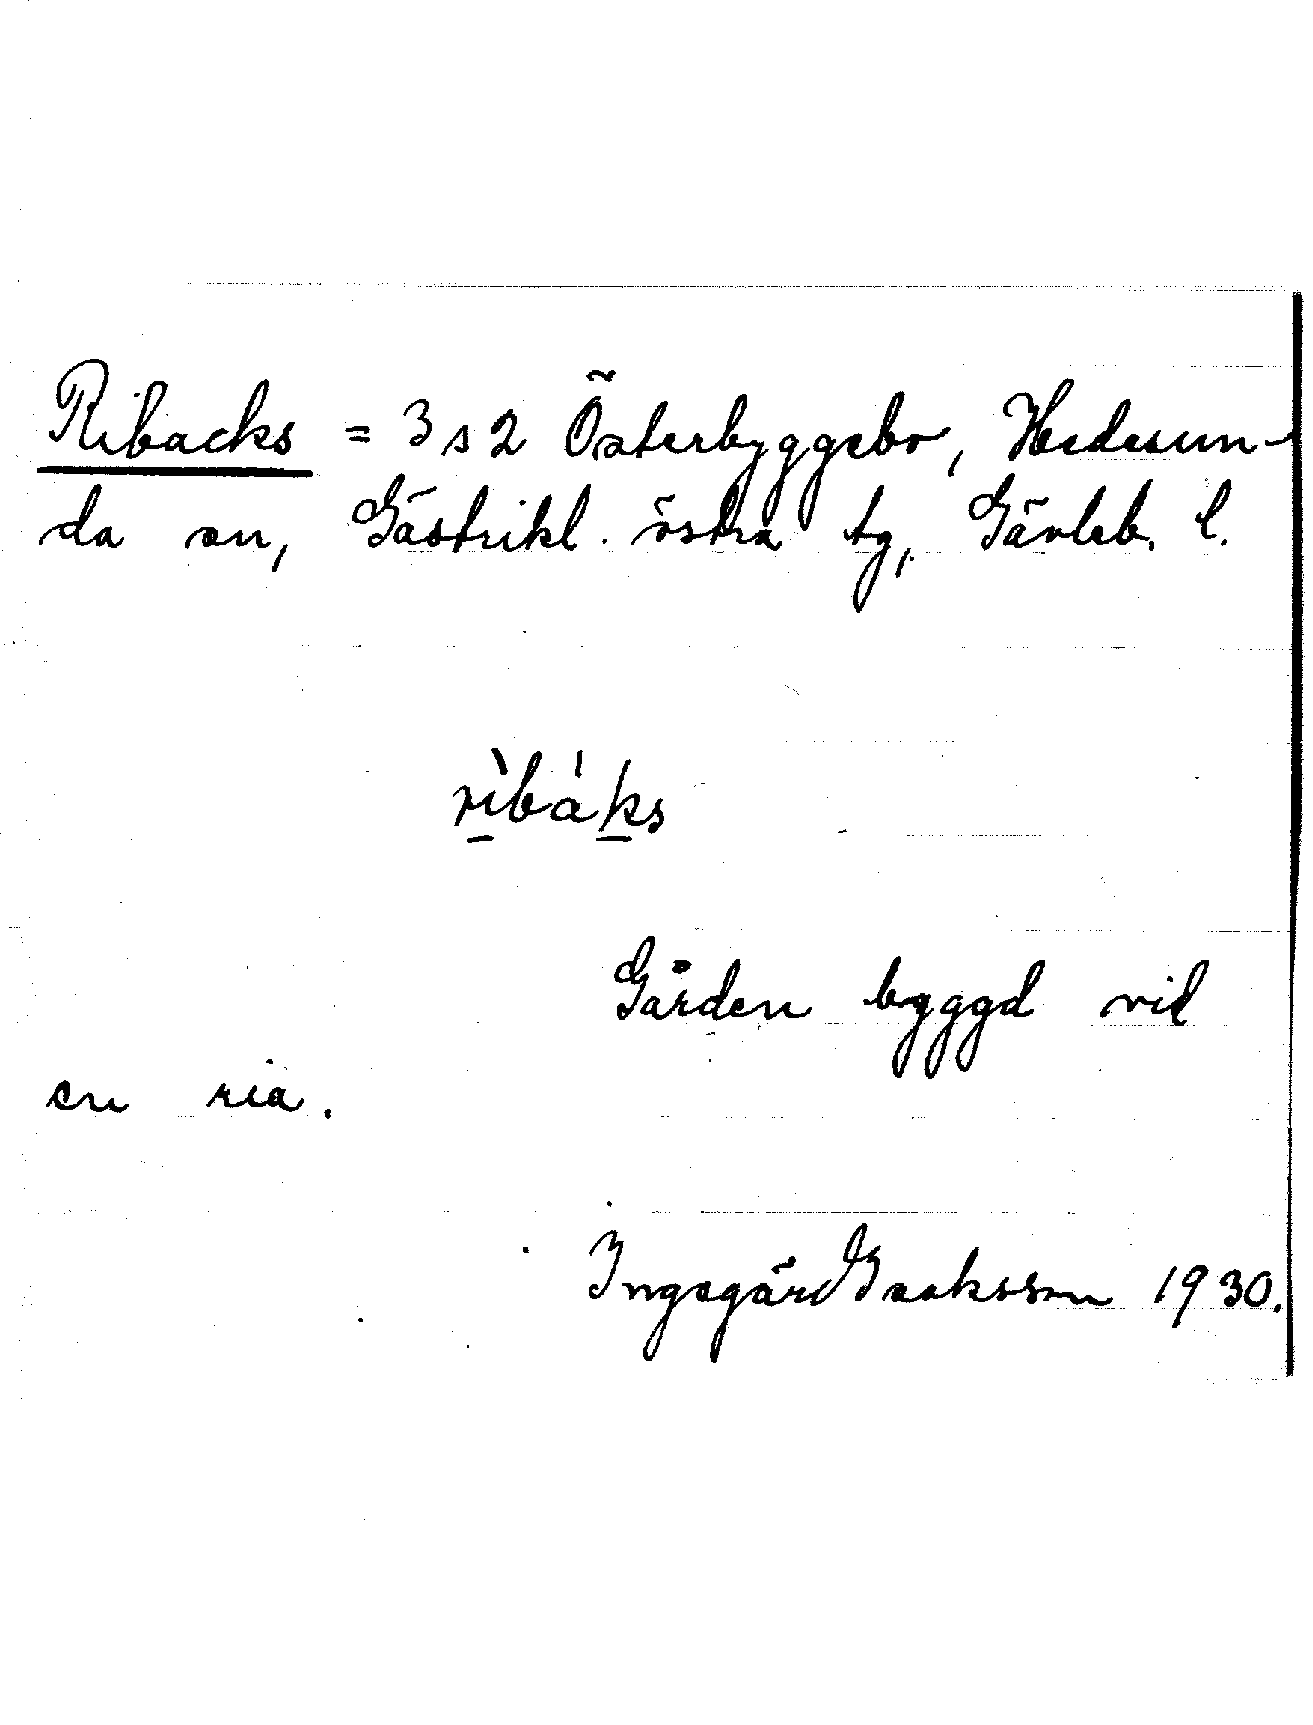 Ribacks = 3s2 Österbyggebo, Hedesun-
da sn, Gästrikl. östra tg, Gävleb. l.
rìbáks
Gården byggd vid
en ria.
Ingegärd Isaksson 1930.